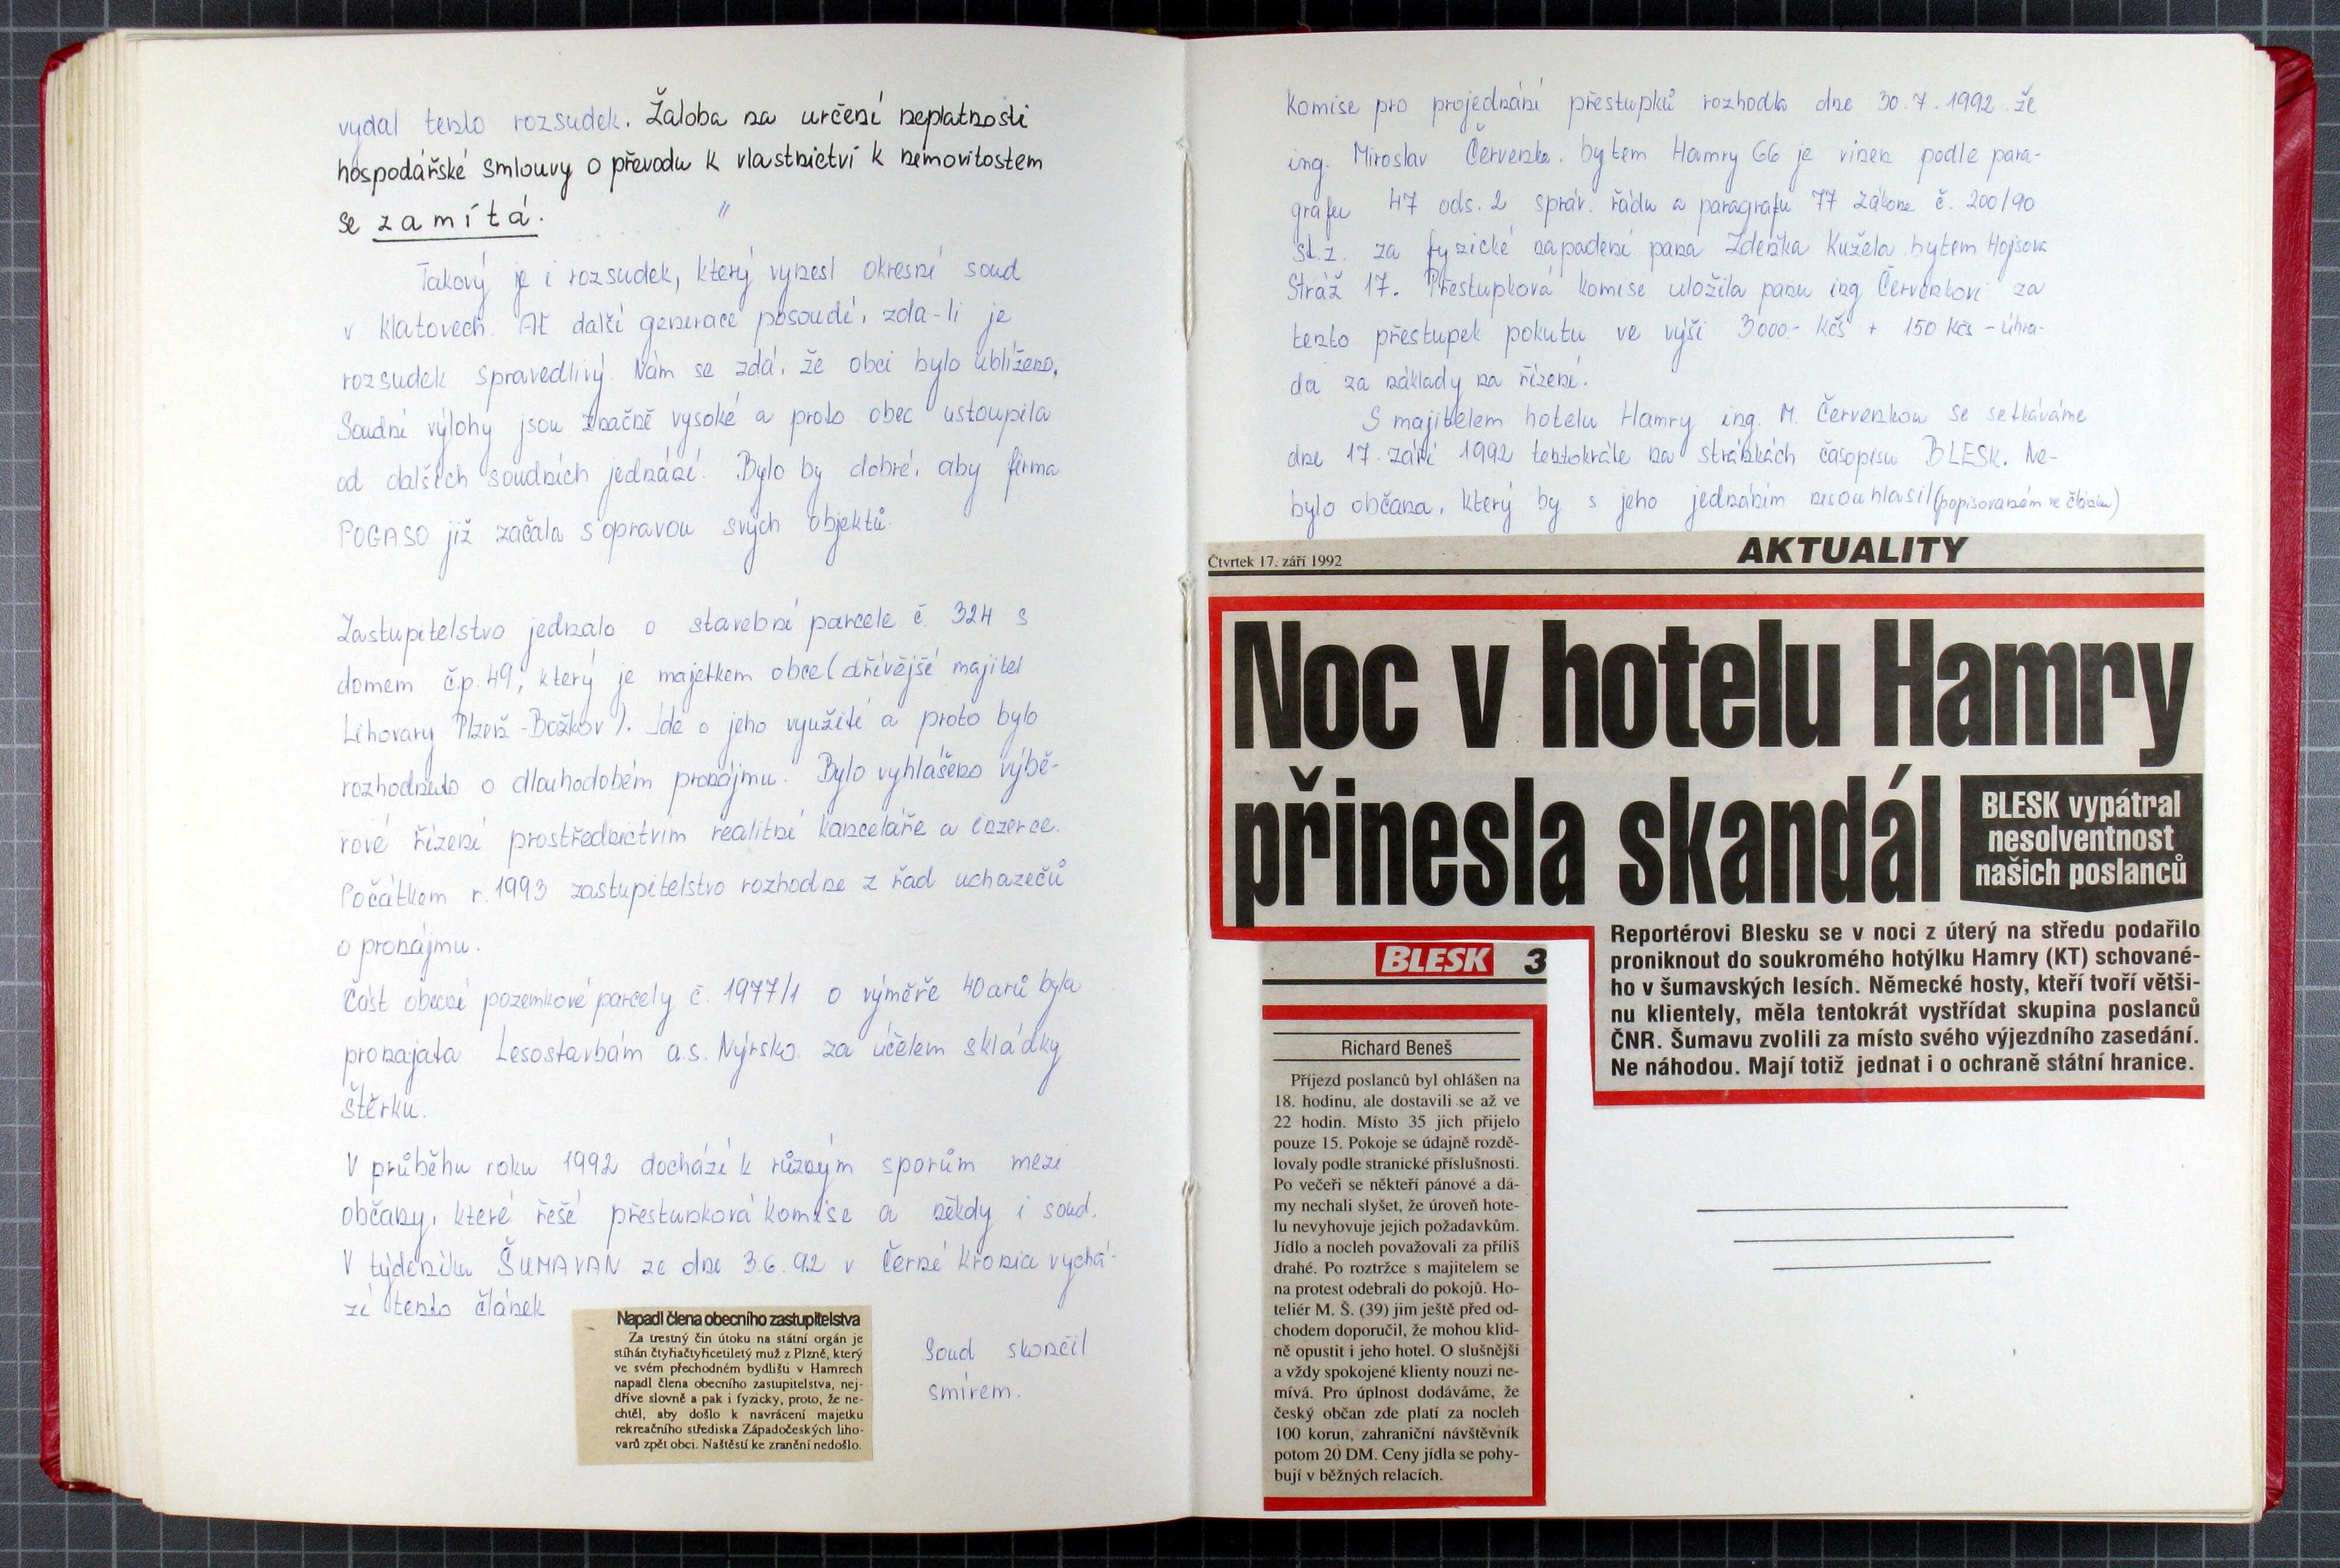 vydal tento rozsudek. Žaloba na určení neplatnosti
hospodářské smlouvy o převodu k vlastnictví k nemovitostem
se zamítá. "
Takový je i rozsudek, který vynesl okresní soud
v Klatovech. Ať další generace posoudí, zda-li je
rozsudek spravedlivý. Nám se zdá, že obci bylo ublíženo.
Soudní výlohy jsou značně vysoké a proto obec ustoupila
od dalších soudních jednání. Bylo by dobré, aby firma
POGASO již začala s opravou svých objektů.
Zastupitelstvo jednalo o stavební parcele č. 324 s
domem č.p. 49, který je majetkem obce (dřívější majitel
Lihovary Plzeň-Božkov). Jde o jeho využití a proto bylo
rozhodnuto o dlouhodobém pronájmu. Bylo vyhlášeno výbě-
rové řízení prostřednictvím realitní kanceláře a inzerce.
Počátkem r. 1993 zastupitelstvo rozhodne z řad uchazečů
o pronájmu.
Část obecní pozemkové parcely č. 1977/1 o výměře 40 arů byla
pronajata Lesostavbám a.s. Nýrsko za účelem skládky
štěrku.
V průběhu roku 1992 dochází k různým sporům mezi
občany, které řeší přestupková komise a někdy i soud.
V týdeníku ŠUMAVAN ze dne 3.6.92 v Černé kronice vychá-
zí tento článek
Napadl člena obecního zastupitelstva
Za trestný čin útoku na státní orgán je
stíhán čtyřiačtyřicetiletý muž z Plzně, který
ve svém přechodném bydlišti v Hamrech
napadl člena obecního zastupitelstva, nej-
dříve slovně a pak i fyzicky, proto, že ne-
chtěl, aby došlo k navrácení majetku
rekreačního střediska Západočeských liho-
varů zpět obci. Naštěstí ke zranění nedošlo.
Soud skončil
smírem.
Komise pro projednání přestupků rozhodla dne 30.7.1992 že
ing. Miroslav Červenka, bytem Hamry 66 je vinen podle para-
grafu 47 ods. 2 správ. řádu a paragrafu 77 zákona č. 200/90
st.z. za fyzické napadení pana Zdeňka Kužela bytem Hojsova
Stráž 17. Přestupková komise uložila panu ing Červenkovi za
tento přestupek pokutu ve výši 3000.- Kčs + 150 Kčs - úhra-
da za náklady na řízení.
S majitelem hotelu Hamry ing. M. Červenkou se setkáváme
dne 17. září 1992 tentokráte na stránkách časopisu BLESK. Ne-
bylo občana, který by s jeho jednáním nesouhlasil (popisovaném ve článku)
Čtvrtek 17. září 1992
AKTUALITY
Noc v hotelu Hamry
přinesla skandál
BLESK vypátral
nesolventnost
našich poslanců
Reportérovi Blesku se v noci z úterý na středu podařilo
proniknout do soukromého hotýlku Hamry (KT) schované-
ho v šumavských lesích. Německé hosty, kteří tvoří větši-
nu klientely, měla tentokrát vystřídat skupina poslanců
ČNR. Šumavu zvolili za místo svého výjezdního zasedání.
Ne náhodou. Mají totiž jednat i o ochraně státní hranice.
BLESK 3
Richard Beneš
Příjezd poslanců byl ohlášen na
18. hodinu, ale dostavili se až ve
22 hodin. Místo 35 jich přijelo
pouze 15. Pokoje se údajně rozdě-
lovaly podle stranické příslušnosti.
Po večeři se někteří pánové a dá-
my nechali slyšet, že úroveň hote-
lu nevyhovuje jejich požadavkům.
Jídlo a nocleh považovali za příliš
drahé. Po roztržce s majitelem se
na protest odebrali do pokojů. Ho-
teliér M. Š. (39) jim ještě před od-
chodem doporučil, že mohou klid-
ně opustit i jeho hotel. O slušnější
a vždy spokojené klienty nouzi ne-
mívá. Pro úplnost dodáváme, že
český občan zde platí za nocleh
100 korun, zahraniční návštěvník
potom 20 DM. Ceny jídla se pohy-
bují v běžných relacích.